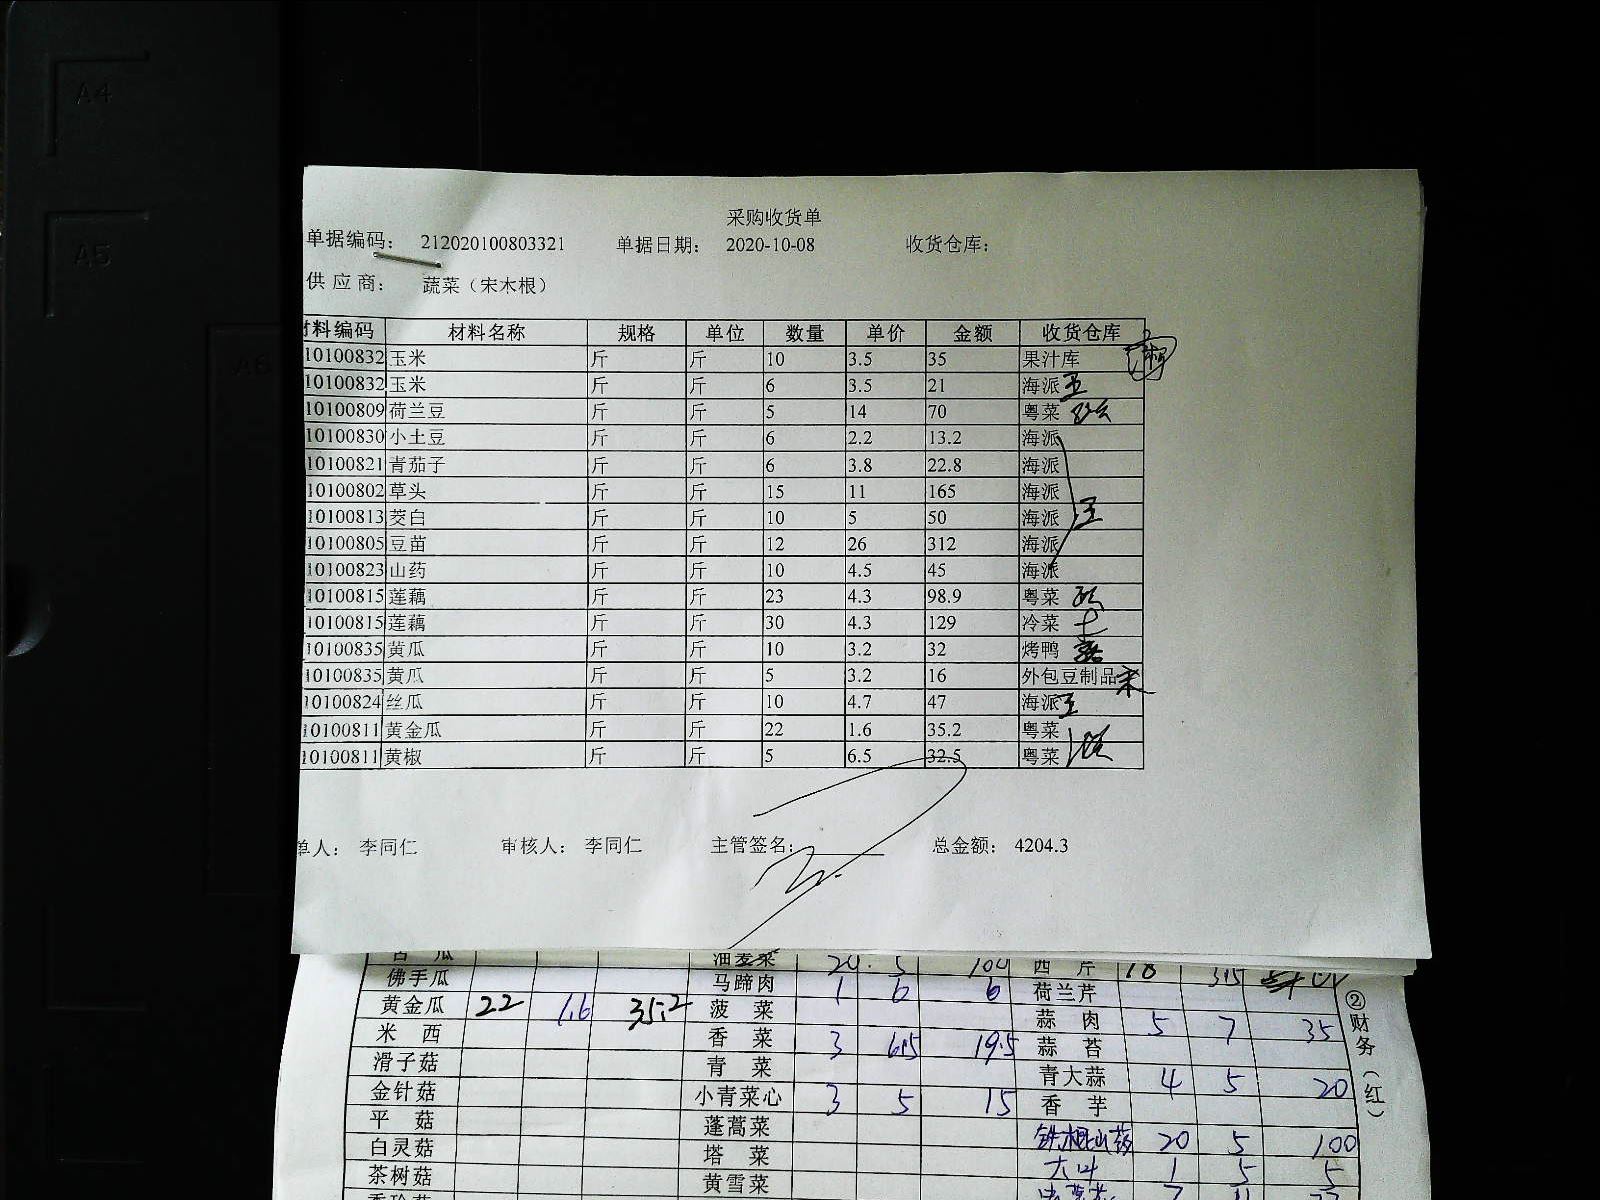 A4
A5
A6
采购收货单
单据编码： 212020100803321 单据日期： 2020-10-08 收货仓库：
供应商： 蔬菜（宋木根）
材料编码 材料名称 规格 单位 数量 单价 金额 收货仓库
10100832 玉米 斤 斤 10 3.5 35 果汁库
10100832 玉米 斤 斤 6 3.5 21 海派 王
10100809 荷兰豆 斤 斤 5 14 70 粤菜
10100830 小土豆 斤 斤 6 2.2 13.2 海派
10100821 青茄子 斤 斤 6 3.8 22.8 海派
10100802 草头 斤 斤 15 11 165 海派
10100813 茭白 斤 斤 10 5 50 海派 王
10100805 豆苗 斤 斤 12 26 312 海派
10100823 山药 斤 斤 10 4.5 45 海派
10100815 莲藕 斤 斤 23 4.3 98.9 粤菜
10100815 莲藕 斤 斤 30 4.3 129 冷菜
10100835 黄瓜 斤 斤 10 3.2 32 烤鸭
10100835 黄瓜 斤 斤 5 3.2 16 外包豆制品
10100824 丝瓜 斤 斤 10 4.7 47 海派 王
10100811 黄金瓜 斤 斤 22 1.6 35.2 粤菜
10100811 黄椒 斤 斤 5 6.5 32.5 粤菜
单人： 李同仁 审核人： 李同仁 主管签名： 总金额： 4204.3
瓜 油麦菜 20 5 100 西芹 18 3.5
佛手瓜 马蹄肉 1 6 6 荷兰芹
黄金瓜 22 1.6 35.2 菠菜 蒜肉 5 7 35
米西 香菜 3 6.5 19.5 蒜苔
滑子菇 青菜 青大蒜 4 5 20
金针菇 小青菜心 3 5 15 香芋
平菇 蓬蒿菜 铁棍山药 20 5 100
白灵菇 塔菜 大叶 1 5 5
茶树菇 黄雪菜
②财务（红）